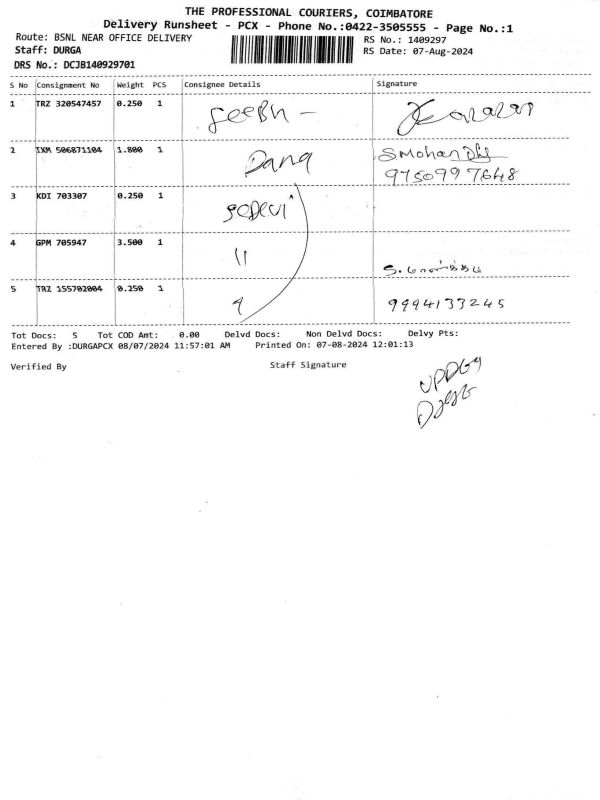 THE PROFESSIONAL COURIERS, COIMBATORE
Delivery Runsheet - PCX - Phone No.:0422-3505555 - Page No.:1
Route: BSNL NEAR OFFICE DELIVERY RS No.: 1409297
Staff: DURGA RS Date: 07-Aug-2024
DRS No.: DCJB140929701
S No Consignment No Weight PCS Consignee Details Signature
1 TRZ 320547457 0.250 1
2 IXM 506871104 1.800 1 S Mohan
9750997648
3 KDI 703307 0.250 1
4 GPM 705947 3.500 1 11
5 TRZ 155702004 0.250 1 9994133245
Tot Docs: 5 Tot COD Amt: 0.00 Delvd Docs: Non Delvd Docs: Delvy Pts:
Entered By :DURGAPCX 08/07/2024 11:57:01 AM Printed On: 07-08-2024 12:01:13
Verified By Staff Signature